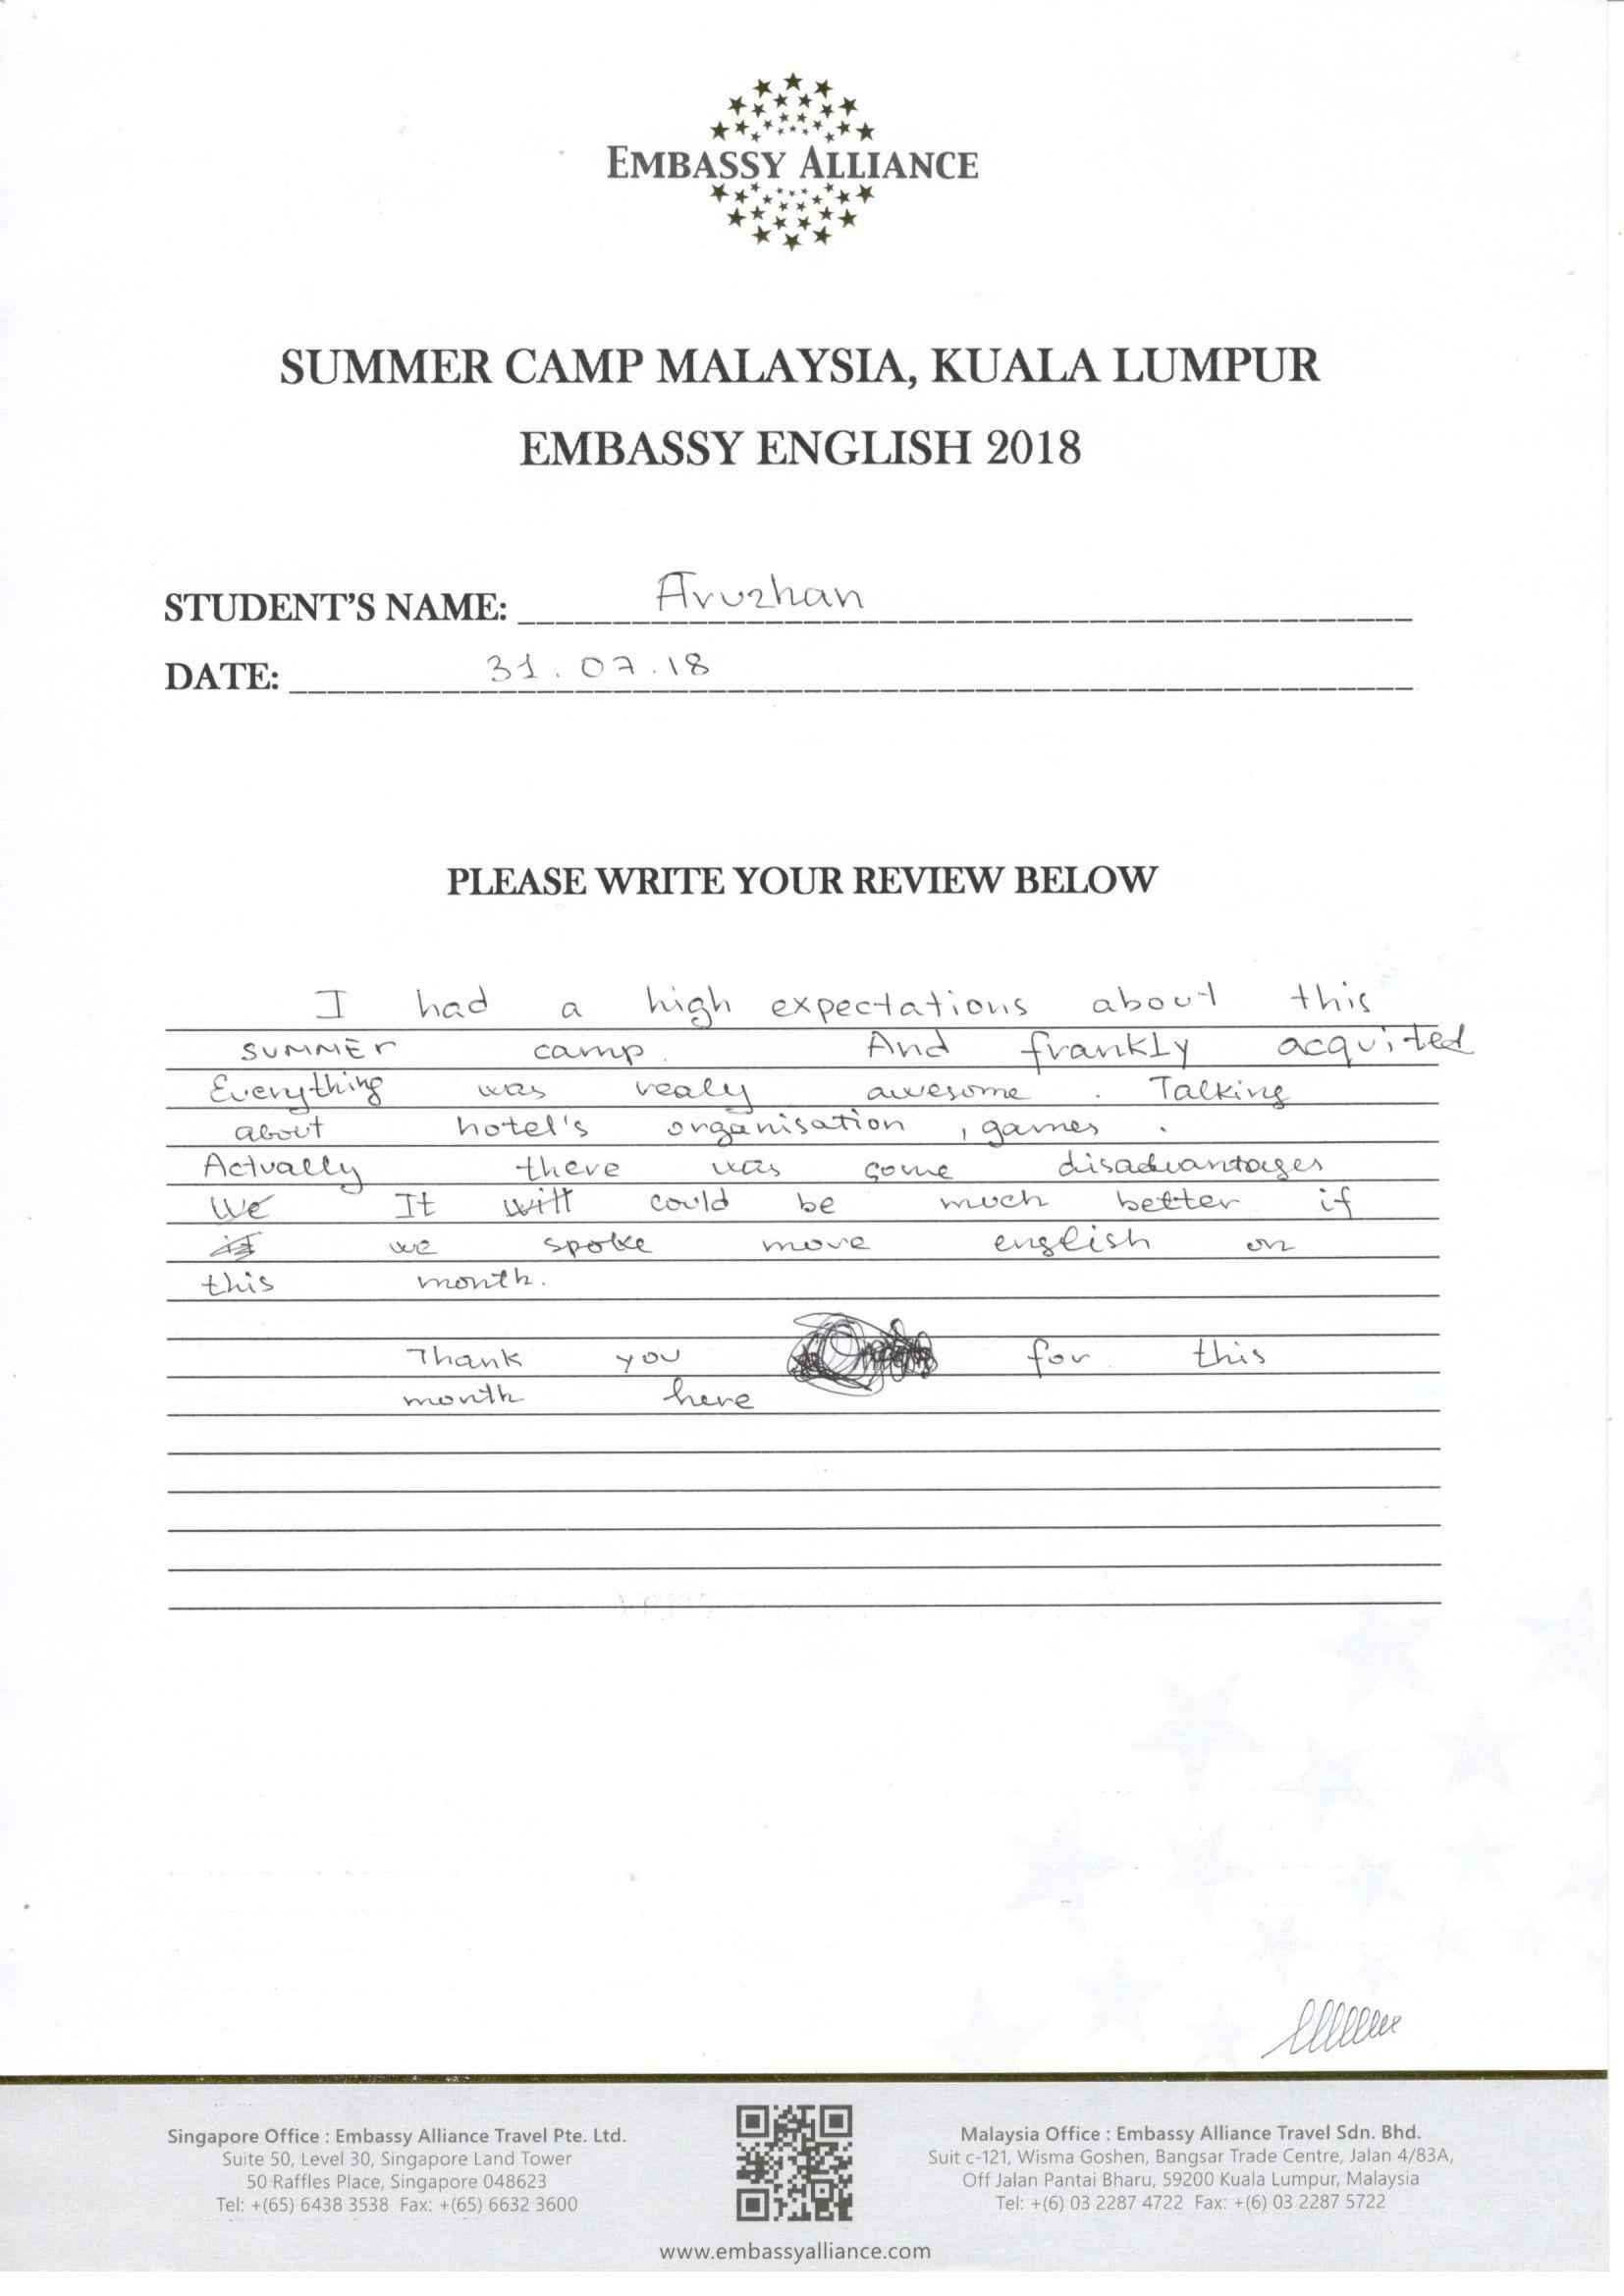 EMBASSY ALLIANCE
SUMMER CAMP MALAYSIA, KUALA LUMPUR
EMBASSY ENGLISH 2018
STUDENT'S NAME: Aruzhan
DATE: 31.07.18
PLEASE WRITE YOUR REVIEW BELOW
I had a high expectations about this
summer camp. And frankly acquited
Everything was realy awesome. Talking
about hotel's organisation, games.
Actually there was some disadvantages
We It will could be much better if
it we spoke more english on
this month.
Thank you for this
month here
Singapore Office : Embassy Alliance Travel Pte. Ltd.
Suite 50, Level 30, Singapore Land Tower
50 Raffles Place, Singapore 048623
Tel: +(65) 6438 3538 Fax: +(65) 6632 3600
Malaysia Office : Embassy Alliance Travel Sdn. Bhd.
Suit c-121, Wisma Goshen, Bangsar Trade Centre, Jalan 4/83A,
Off Jalan Pantai Bharu, 59200 Kuala Lumpur, Malaysia
Tel: +(6) 03 2287 4722 Fax: +(6) 03 2287 5722
www.embassyalliance.com